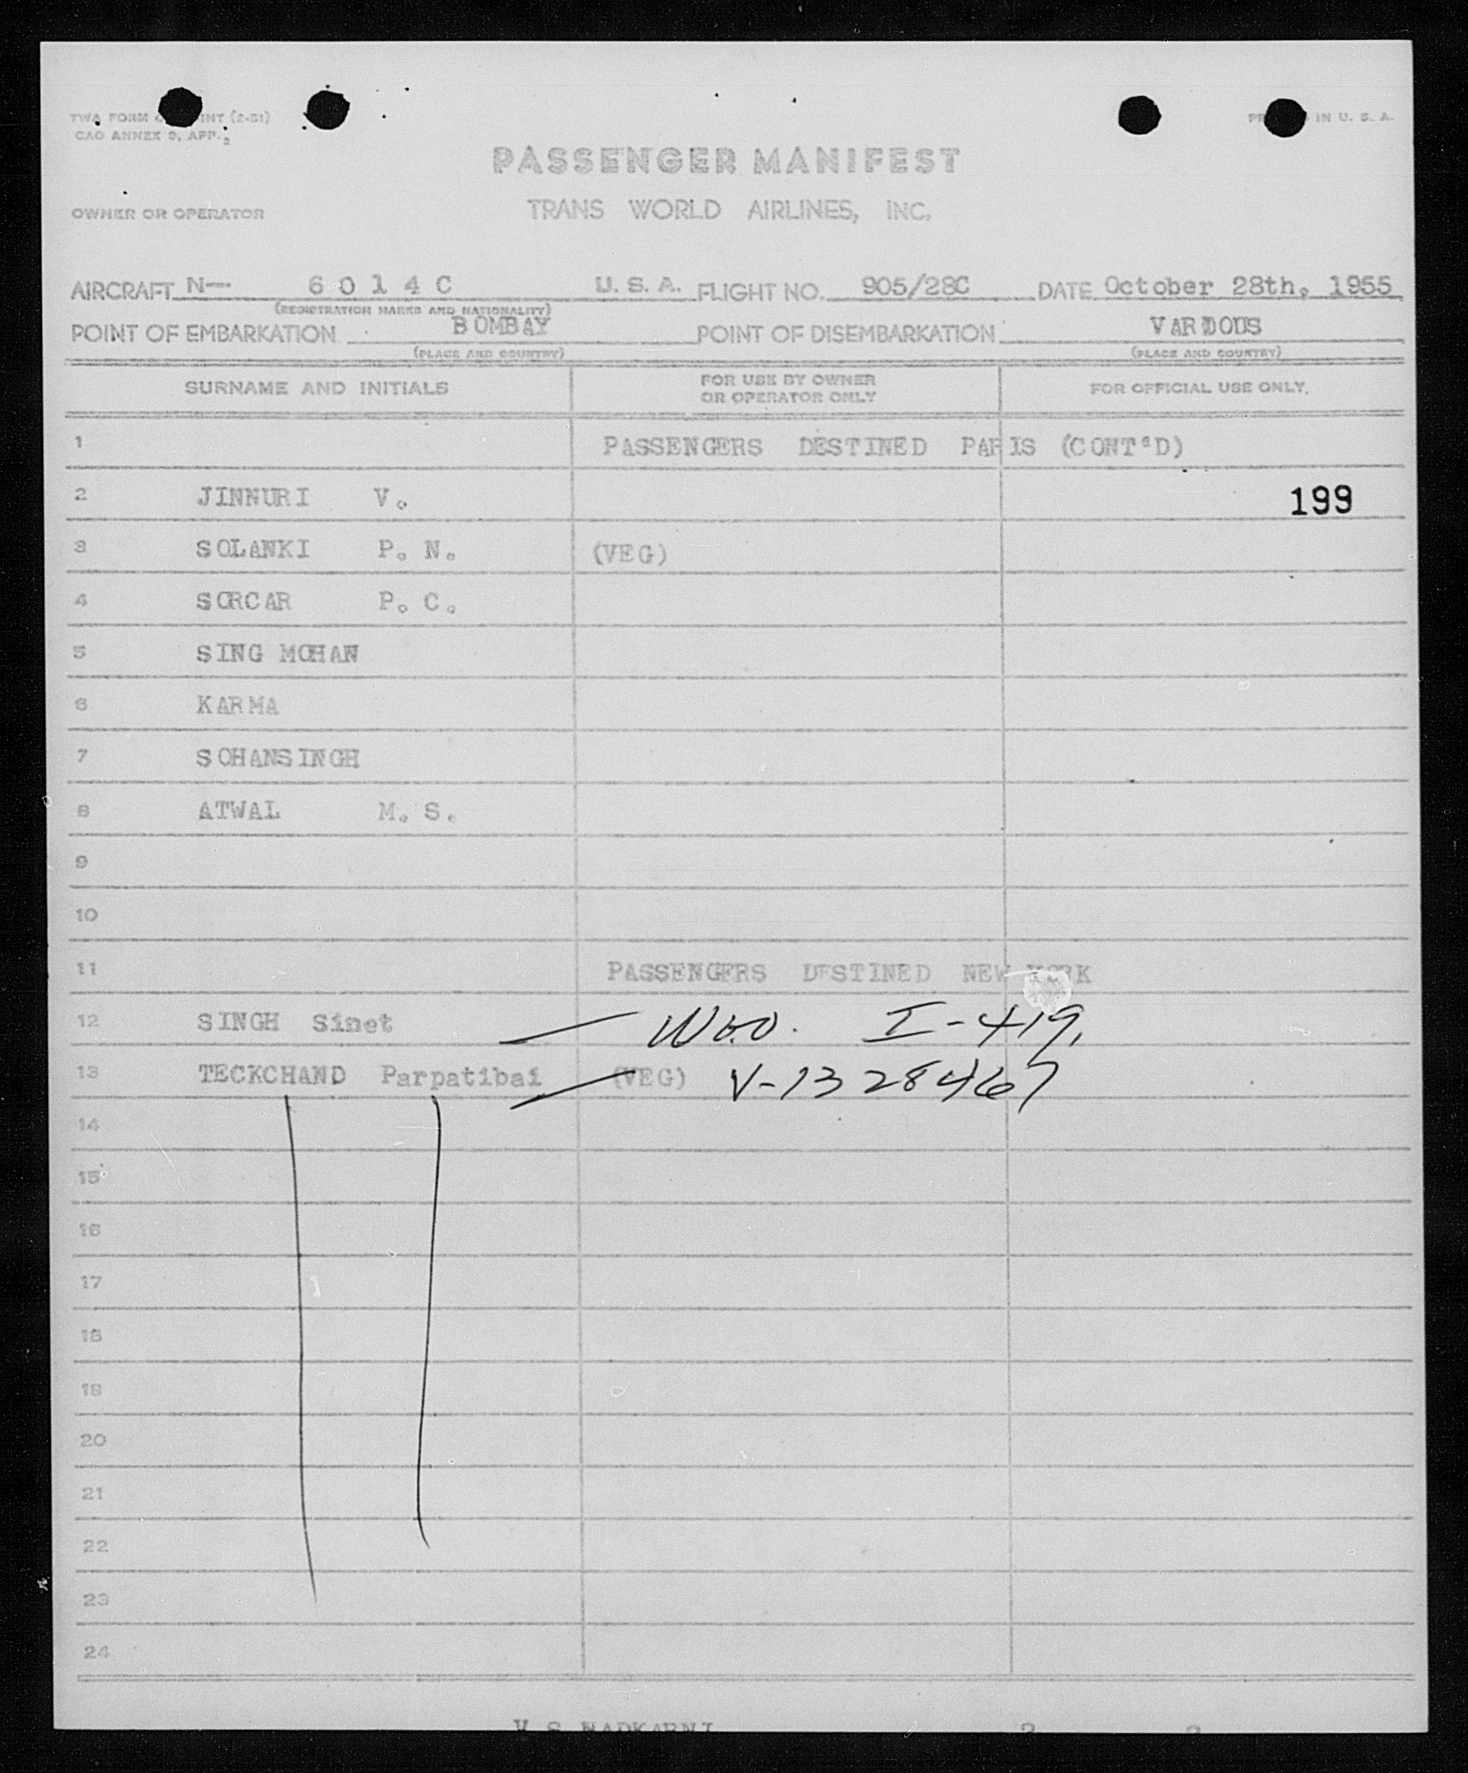 TWA FORM INT (2-51)
CAO ANNEX 9, APP. 2
IN U. S. A.
PASSENGER MANIFEST
OWNER OR OPERATOR TRANS WORLD AIRLINES, INC.
AIRCRAFT N— 6 0 1 4 C U. S. A. FLIGHT NO. 905/28C DATE October 28th, 1955
(REGISTRATION MARKS AND NATIONALITY)
POINT OF EMBARKATION BOMBAY POINT OF DISEMBARKATION VARIOUS
(PLACE AND COUNTRY) (PLACE AND COUNTRY)
SURNAME AND INITIALS FOR USE BY OWNER OR OPERATOR ONLY FOR OFFICIAL USE ONLY.
1 PASSENGERS DESTINED PARIS (CONT'D)
2 JINNURI V. 199
3 SOLANKI P. N. (VEG)
4 SORCAR P. C.
5 SING MOHAN
6 KARMA
7 SOHANSINGH
8 ATWAL M. S.
9
10
11 PASSENGERS DESTINED NEW YORK
12 SINGH Sinet I-419.
13 TECKCHAND Parpatibai (VEG) V-1328467
14
15
16
17
18
19
20
21
22
23
24
V S NADKARNI